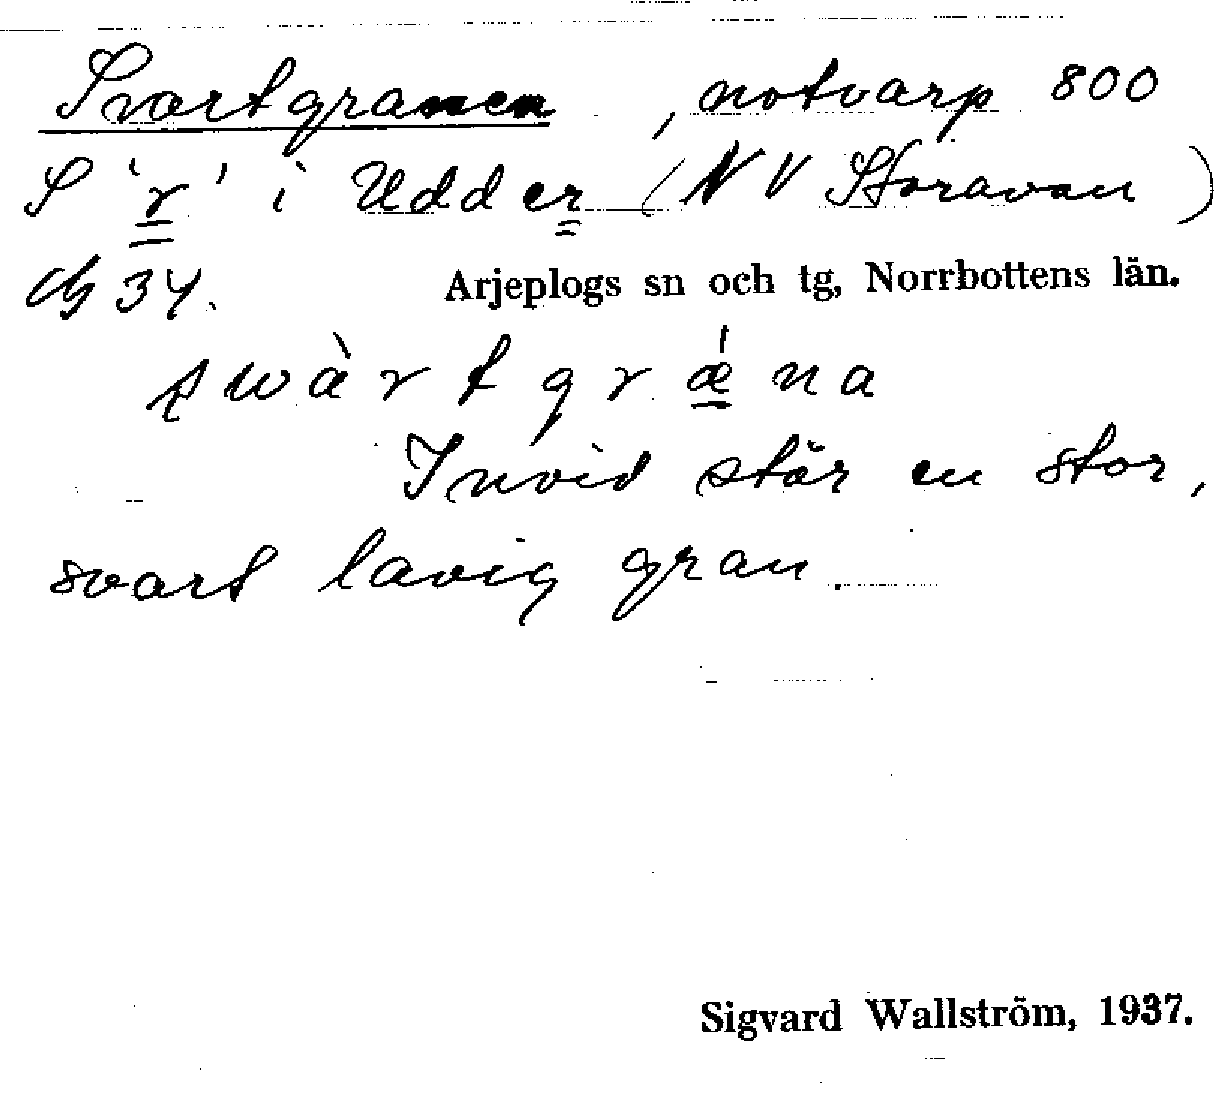 Svartgranen, notvarp 800
S 'r' i Udder (NV Storavan)
34. Arjeplogs sn och tg, Norrbottens län.
swàrtgrǽna
Invid står en stor,
svart lavig gran.
Sigvard Wallström, 1937.